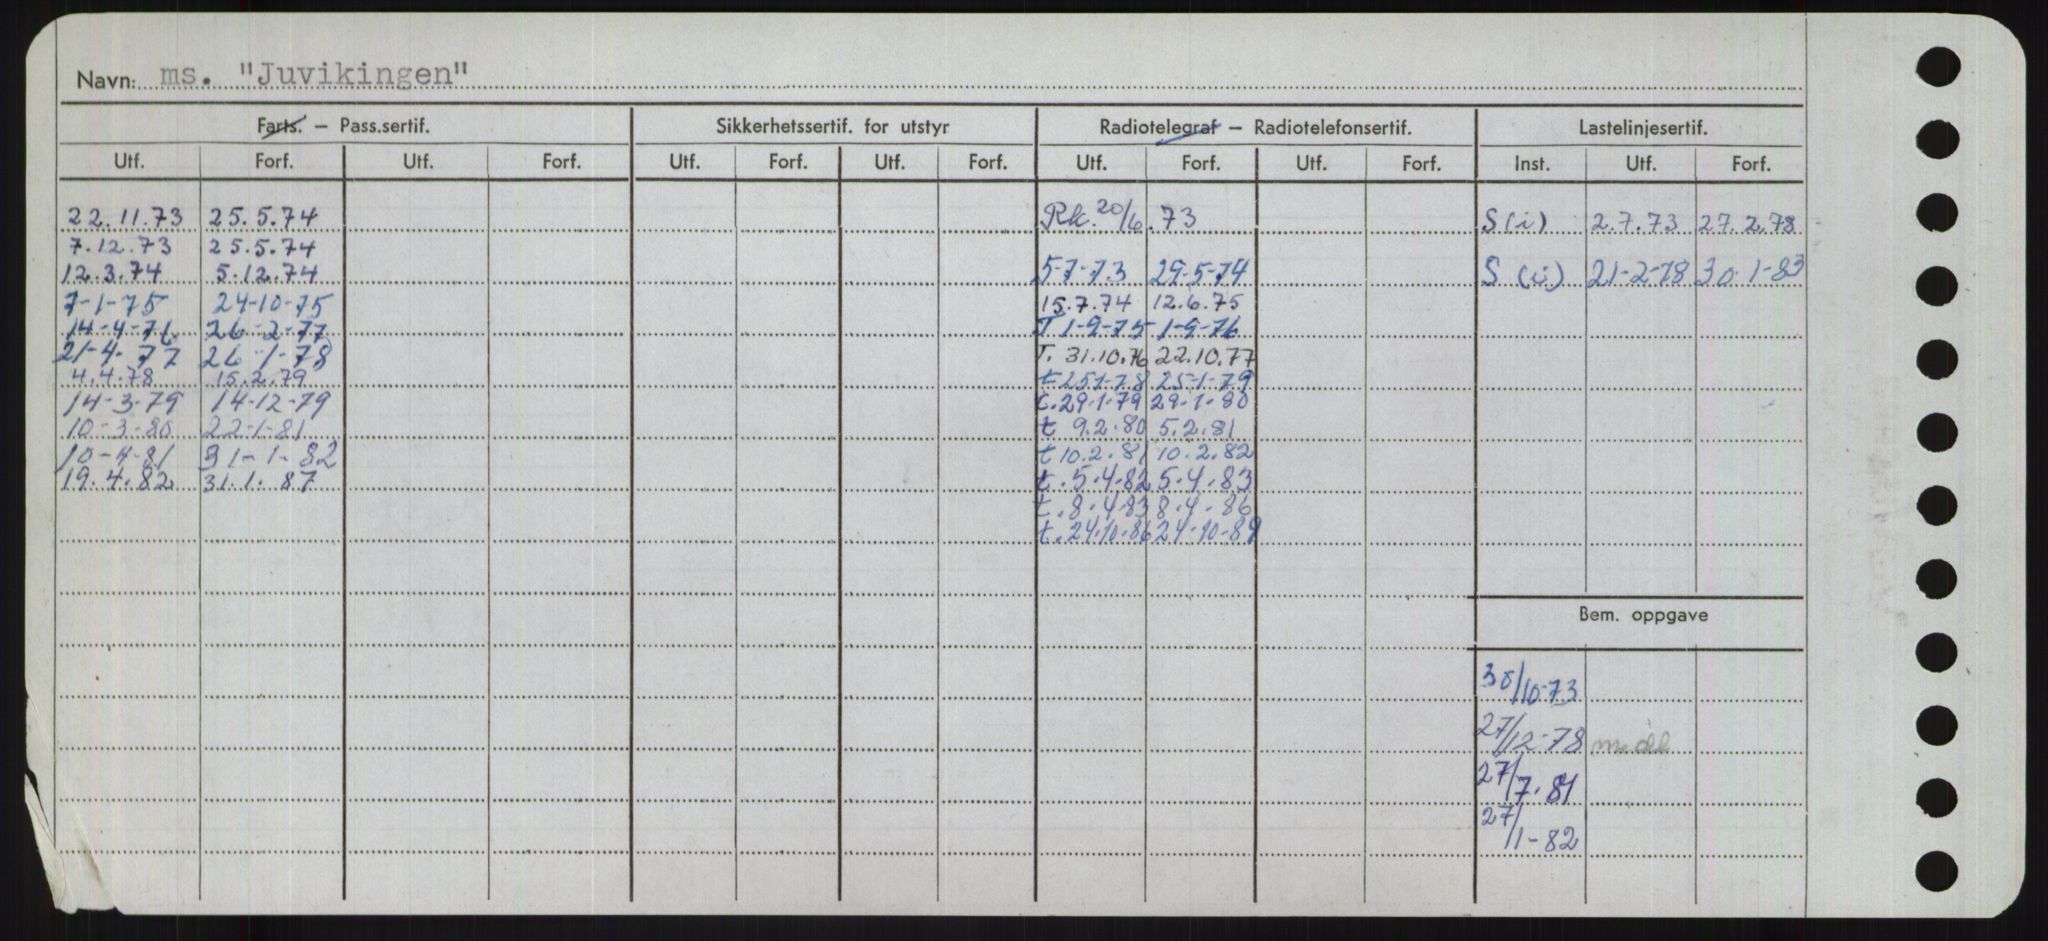 Navn: ms. "Juvikingen"
Farts. – Pass.sertif. Sikkerhetssertif. for utstyr Radiotelegraf – Radiotelefonsertif. Lastelinjesertif.
Utf. Forf. Utf. Forf. Utf. Forf. Utf. Forf. Utf. Forf. Utf. Forf. Inst. Utf. Forf.
22.11.73 25.5.74 Rk. 20/6.73 S(i) 2.7.73 27.2.78
7.12.73 25.5.74
12.3.74 5.12.74 5-7-73 29-5-74 S (i) 21-2-78 30-1-83
7-1-75 24-10-75 15.7.74 12.6.75
14-4-76 26-2-77 T. 1-9-75 1-9-76
21-4-77 26-1-78 T. 31.10.76 22.10.77
4.4.78 15.2.79 t 25-1-78 25-1-79
14-3-79 14-12-79 t. 29.1.79 29.1.80
10-3-80 22-1-81 t 9.2.80 5.2.81
10-4-81 31-1-82 t 10.2.81 10.2.82
19.4.82 31.1.87 t. 5.4.82 5.4.83
t. 8.4.83 8.4.86
t. 24.10.86 24-10-89
Bem. oppgave
30/10-73
27/12-78 medd
27/7.81
27/11-82